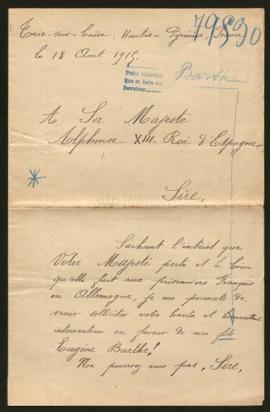 79530
Trie-sur-Baïse, Hautes-Pyrénées, France
le 18 Août 1915.
Pedir informes
Barthe
A Sa Majesté
Alphonse XIII. Roi d'Espagne,
Sire,
Sachant l'intérêt que
Votre Majesté porte et le bien
qu'elle fait aux prisonniers Français
en Allemagne, je me permets de
venir solliciter votre haute et bienveillante
intervention en faveur de mon fils
Eugène Barthe!
Ne pourrez vous pas, Sire,